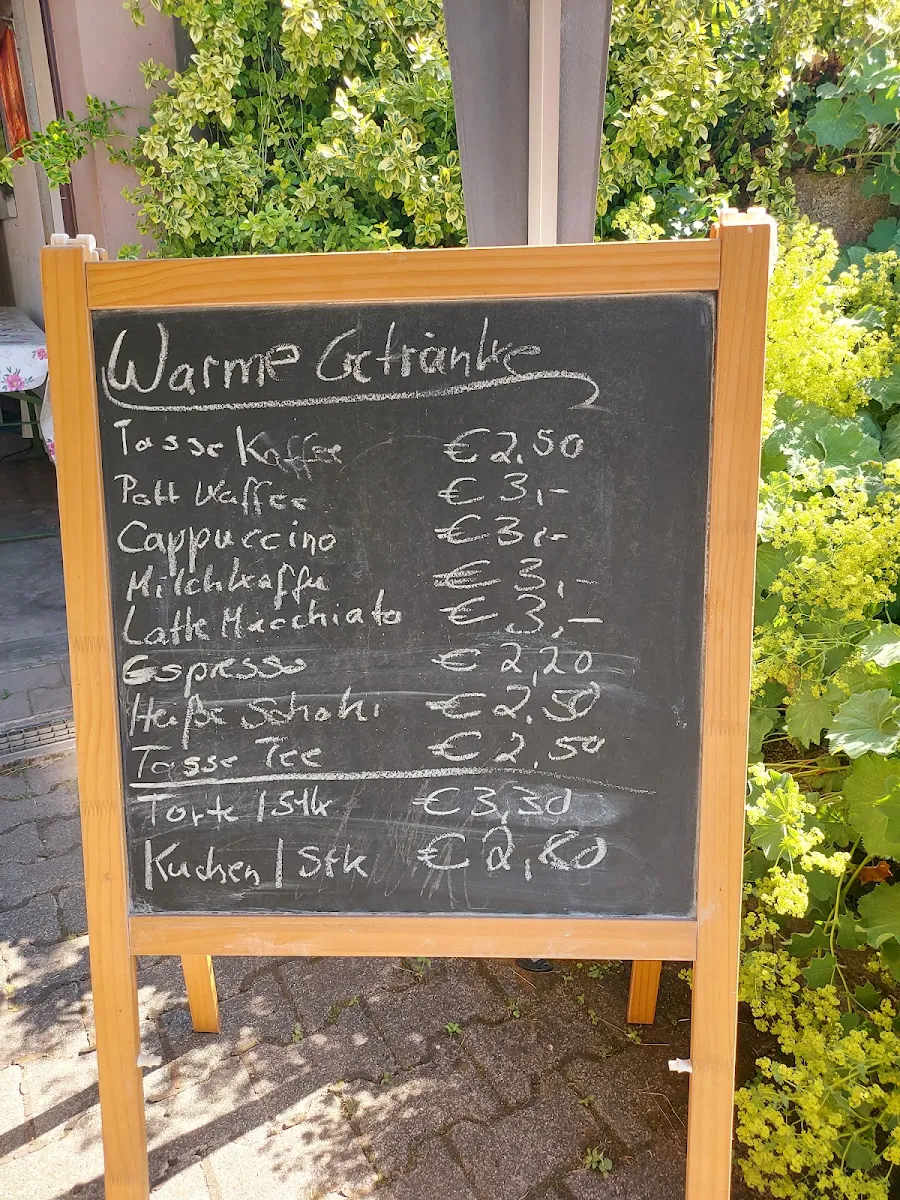 Warme Getränke
Tasse Kaffee € 2,50
Pott Kaffee € 3,-
Cappuccino € 3,-
Milchkaffee € 3,-
Latte Macchiato € 3,-
Espresso € 2,20
Heiße Schoki € 2,50
Tasse Tee € 2,50
Torte / Stk € 3,30
Kuchen / Stk €